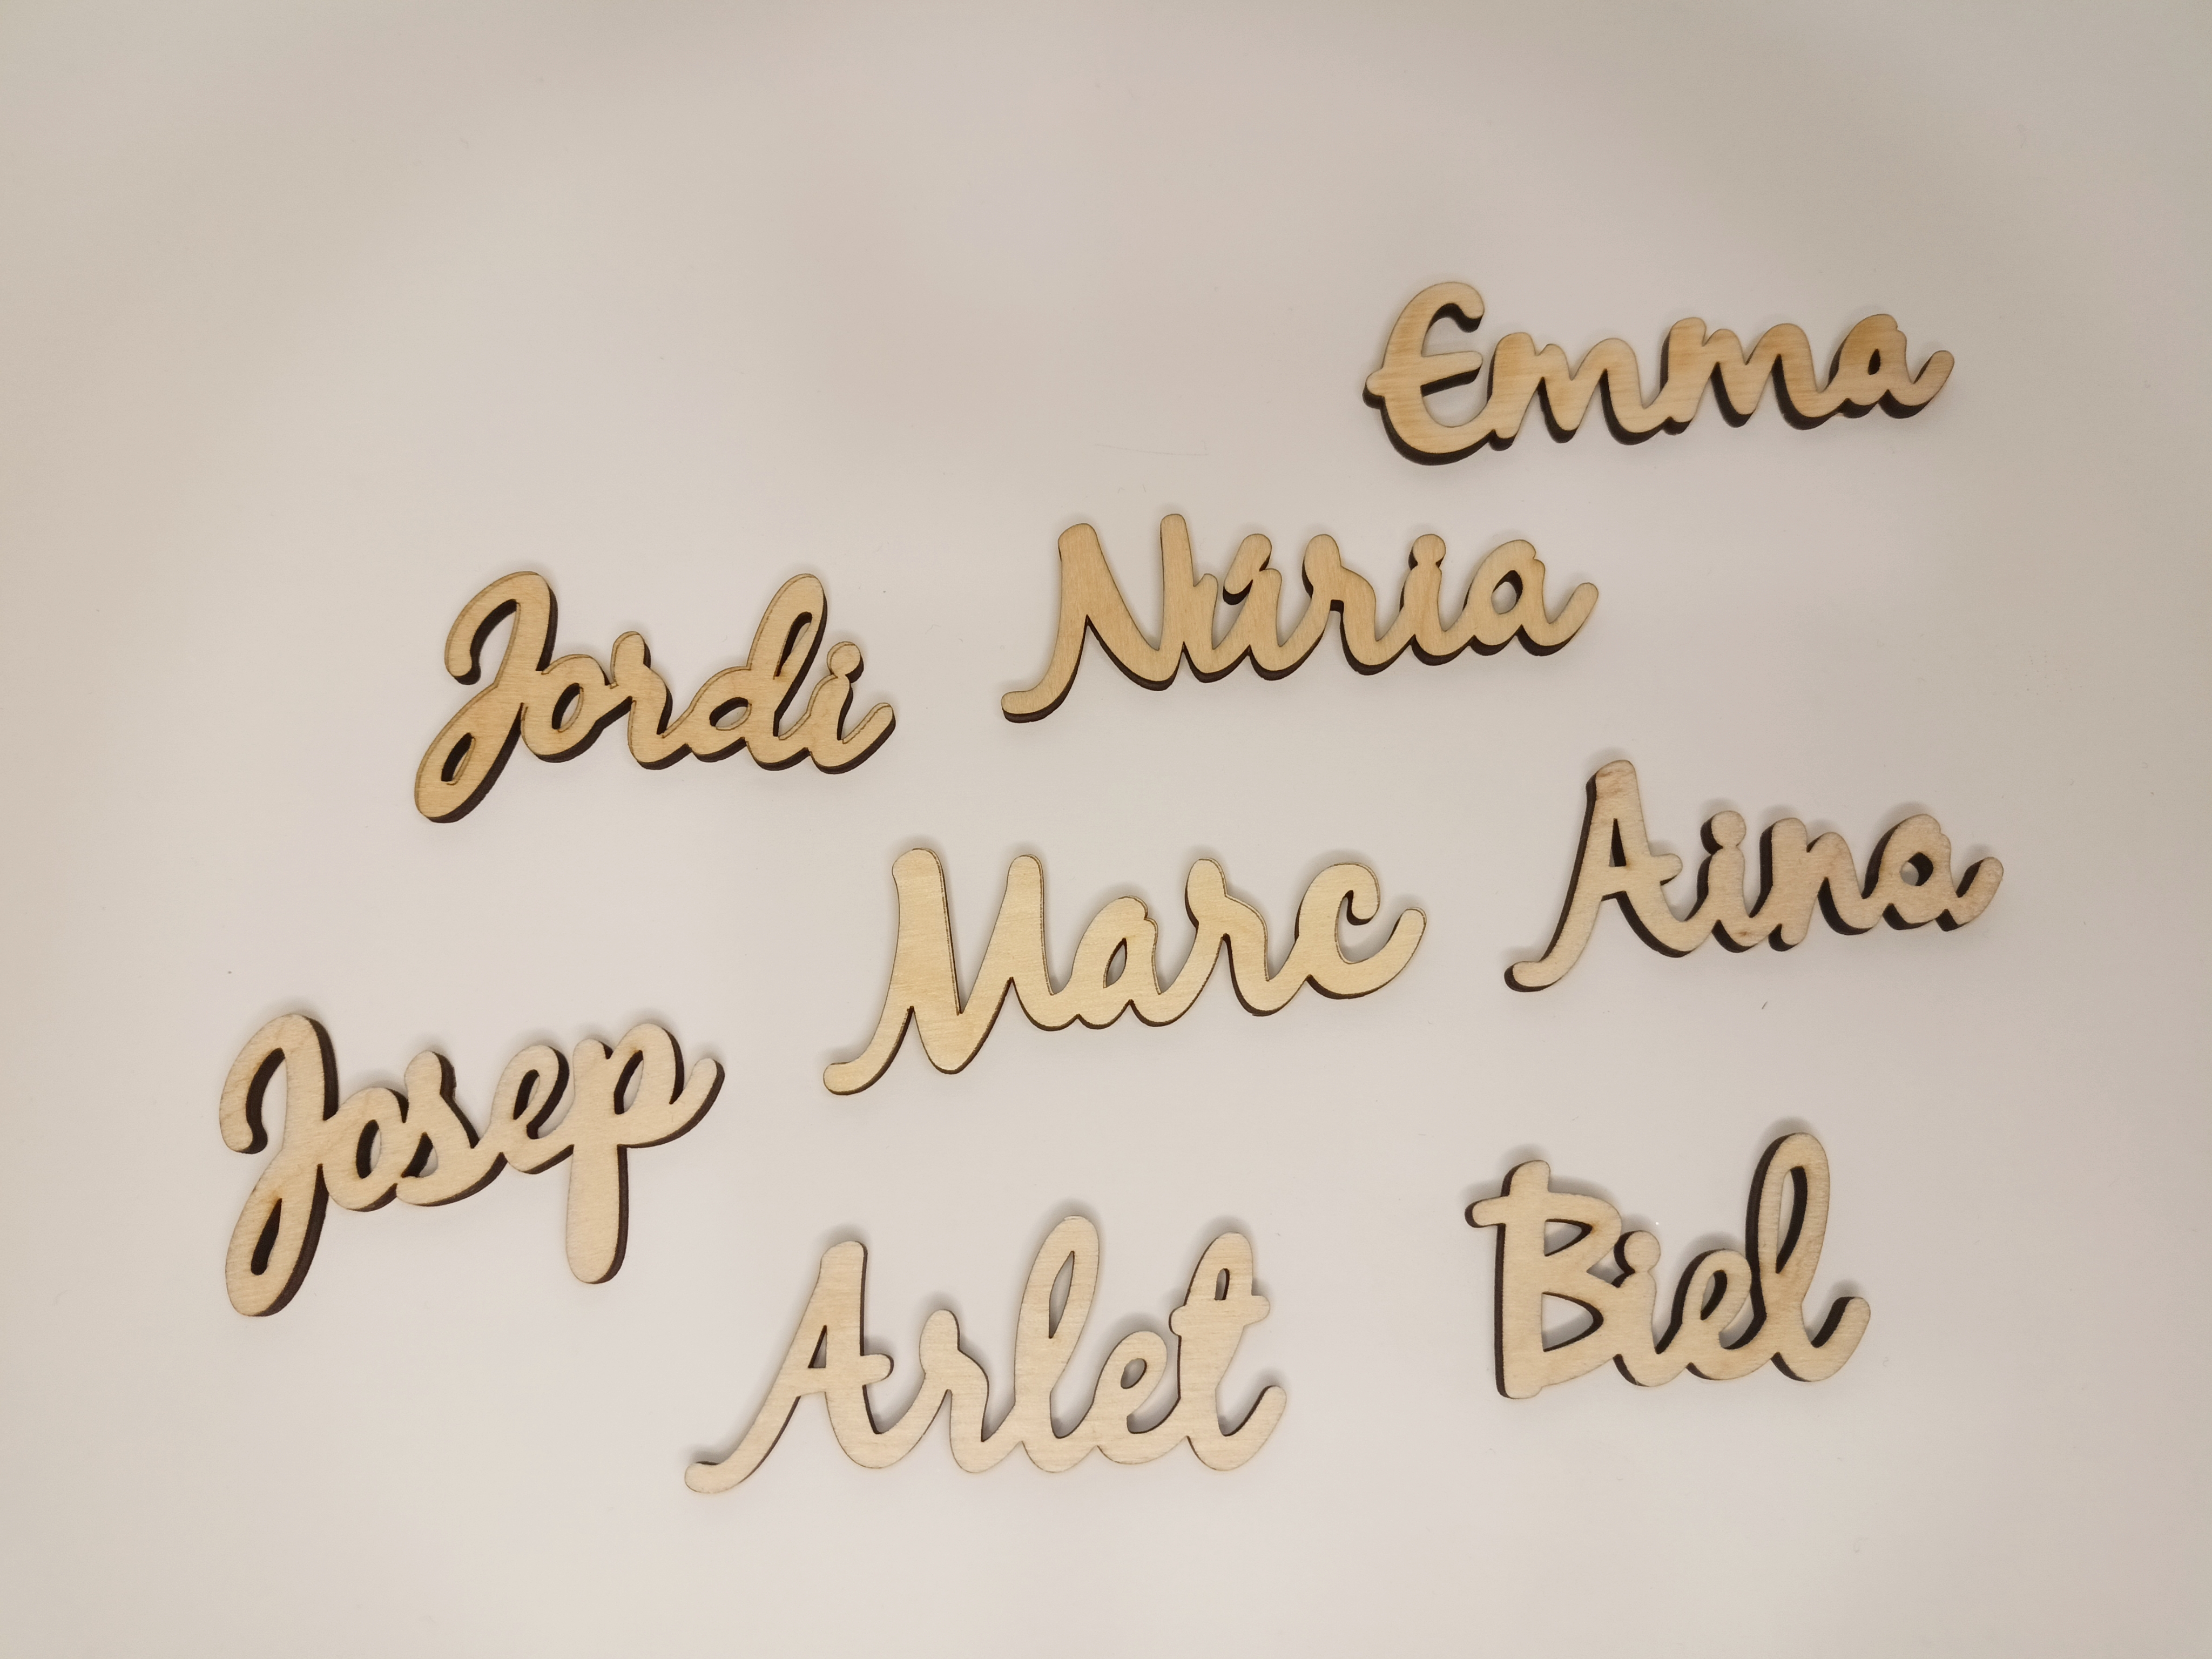 Emma
Núria
Jordi
Aina
Marc
Josep
Biel
Arlet